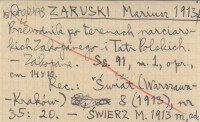 ZARUSKI Mariusz 1913
Przewodnik po terenach narciar-
skich Zakopanego i Tatr Polskich.
- Zakopane. Ss. 91, m. 1, opr.,
cm 14x
Rec.: "Świat (Warszawa-
Kraków) 8 (1913), nr
35: 20. - ŚWIERZ M. 1913 m, od